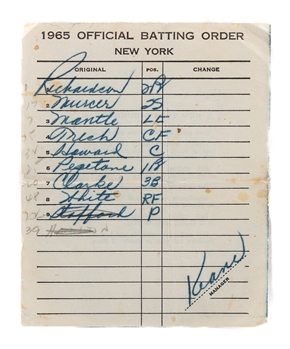 1965 OFFICIAL BATTING ORDER
NEW YORK
ORIGINAL POS. CHANGE
Richardson 2B
2 Murcer SS
3 Mantle LF
4 Tresh CF
5 Howard C
6 Pepitone 1B
7 Clarke 3B
8 White RF
9 Stafford P
39
Keane
MANAGER